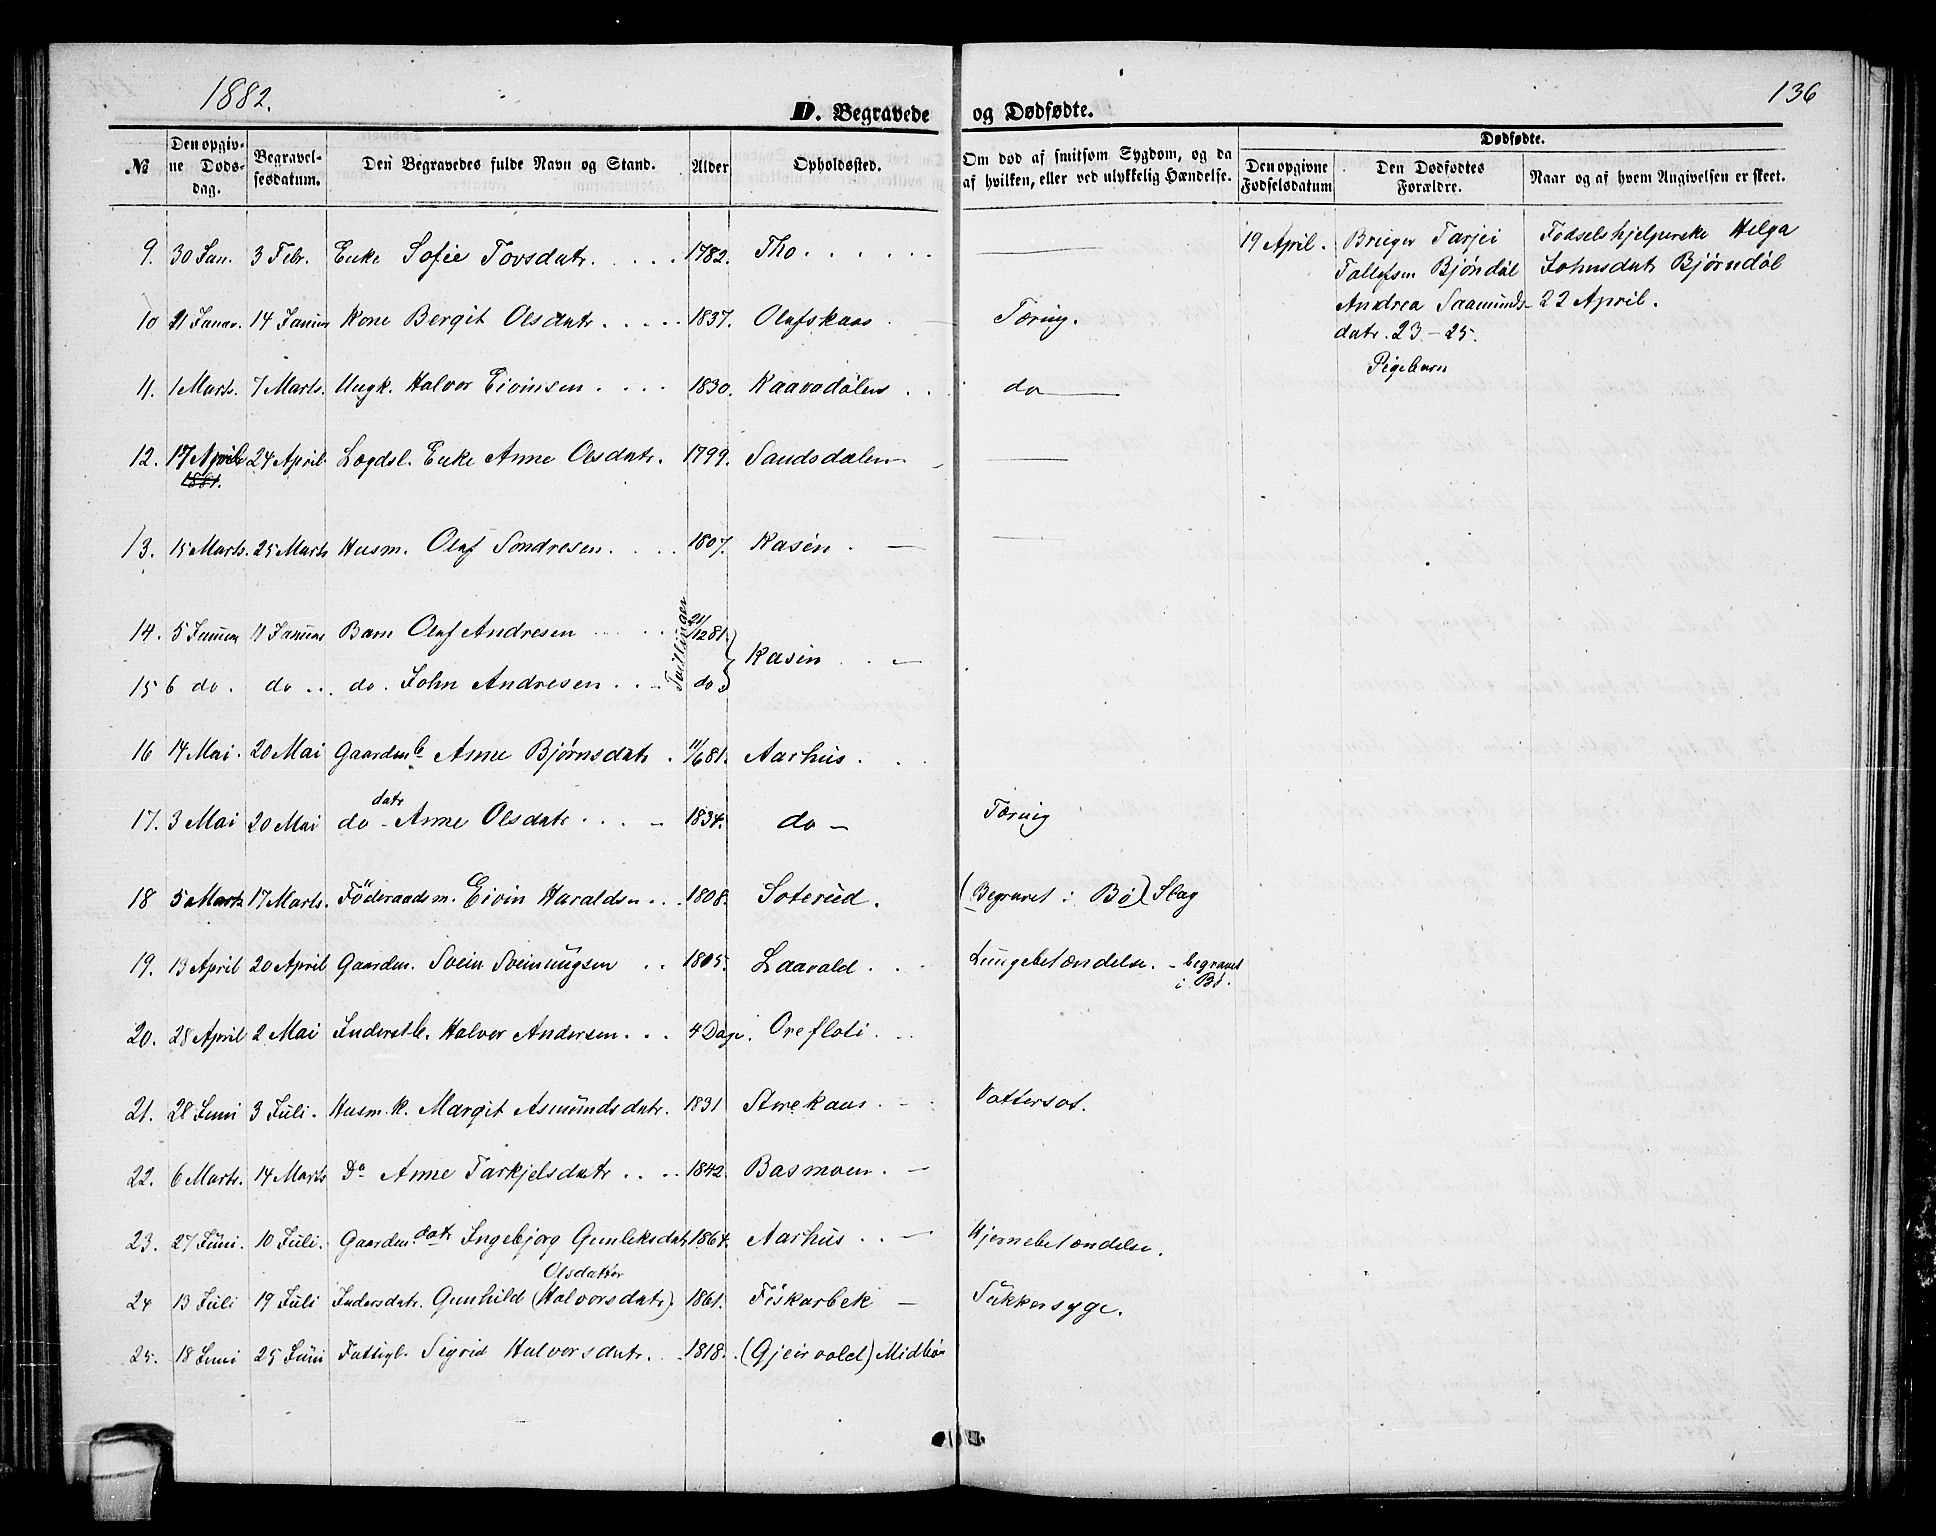 1882.
136
D. Begravede og Dødfødte.
№ Den opgivne Dødsdag. Begravelsesdatum. Den Begravedes fulde Navn og Stand. Alder Opholdssted. Om død af smitsom Sygdom, og da af hvilken, eller ved ulykkelig Hændelse. Dødfødte. Den opgivne Fødselsdatum Den Dødfødtes Forældre. Naar og af hvem Angivelsen er skeet.
9. 30 Jan. 3 Febr. Enke Sofie Tovsdatr. 1782. Tho — 19 April. Bruger Tarjei Fødselshjelperske Helga
Tollefsen Bjöndöl Johnsdatr Bjørndöl
Andrea Saamunds- 22 April.
datr. 23-25.
Pigebarn
10 Januar. 14 Januar Kone Bergit Olsdatr. 1837. Olafskaas Tæring.
11. 1 Marts. 7 Marts. Ungk. Halvor Eivinsen. 1830. Kaavadölen do
12. 17 April 24 April. Lægdsl. Enke Anne Olsdatr. 1799. Sandsdalen —
1881.
13. 15 Marts. 25 Marts Husm. Olaf Sondresen. 1807. Kasin —
14. 5 Januar 11 Januar Barn Olaf Andresen Tvillinger 21/12 81.
Kasin
15 6 do. do. do. John Andresen do
16 14 Mai. 20 Mai Gaardm b Anne Bjørnsdatr. 11/6 81. Aarhus.
17. 3 Mai 20 Mai do datr Anne Olsdatr. 1834. do — Tæring
18 5 Marts 17 Marts. Föderaadsm. Eivin Haraldsen 1808. Soterud. (Begravet i Bö) Slag
19. 13 April 20 April Gaardm. Svein Sveinungsen 1805. Laavald. Lungebetændelse. - begravet
i Bö.
20. 28 April 2 Mai Inderstb. Halvor Andersen. 4 Dage. Orefloti.
21. 28 Juni 3 Juli. Husm. k. Margit Asmundsdatr. 1831 Vattersot.
22. 6 Marts. 14 Marts Do Anne Tarkjelsdatr 1842. Basmoen.
23. 27 Juni. 10 Juli. Gaardm. datr Ingebjorg Gunleksdatr 1864. Aarhus. Hjernebetændelse.
24 13 Juli 19 Juli Indersdatr. Gunhild (Halvorsdatr) Olsdatter 1861. Fiskarbek — Sukkersyge.
25. 18 Juni 25 Juni Fattigl. Sigrid Halvorsdatr. 1818. (Gjeirvold) Midböe